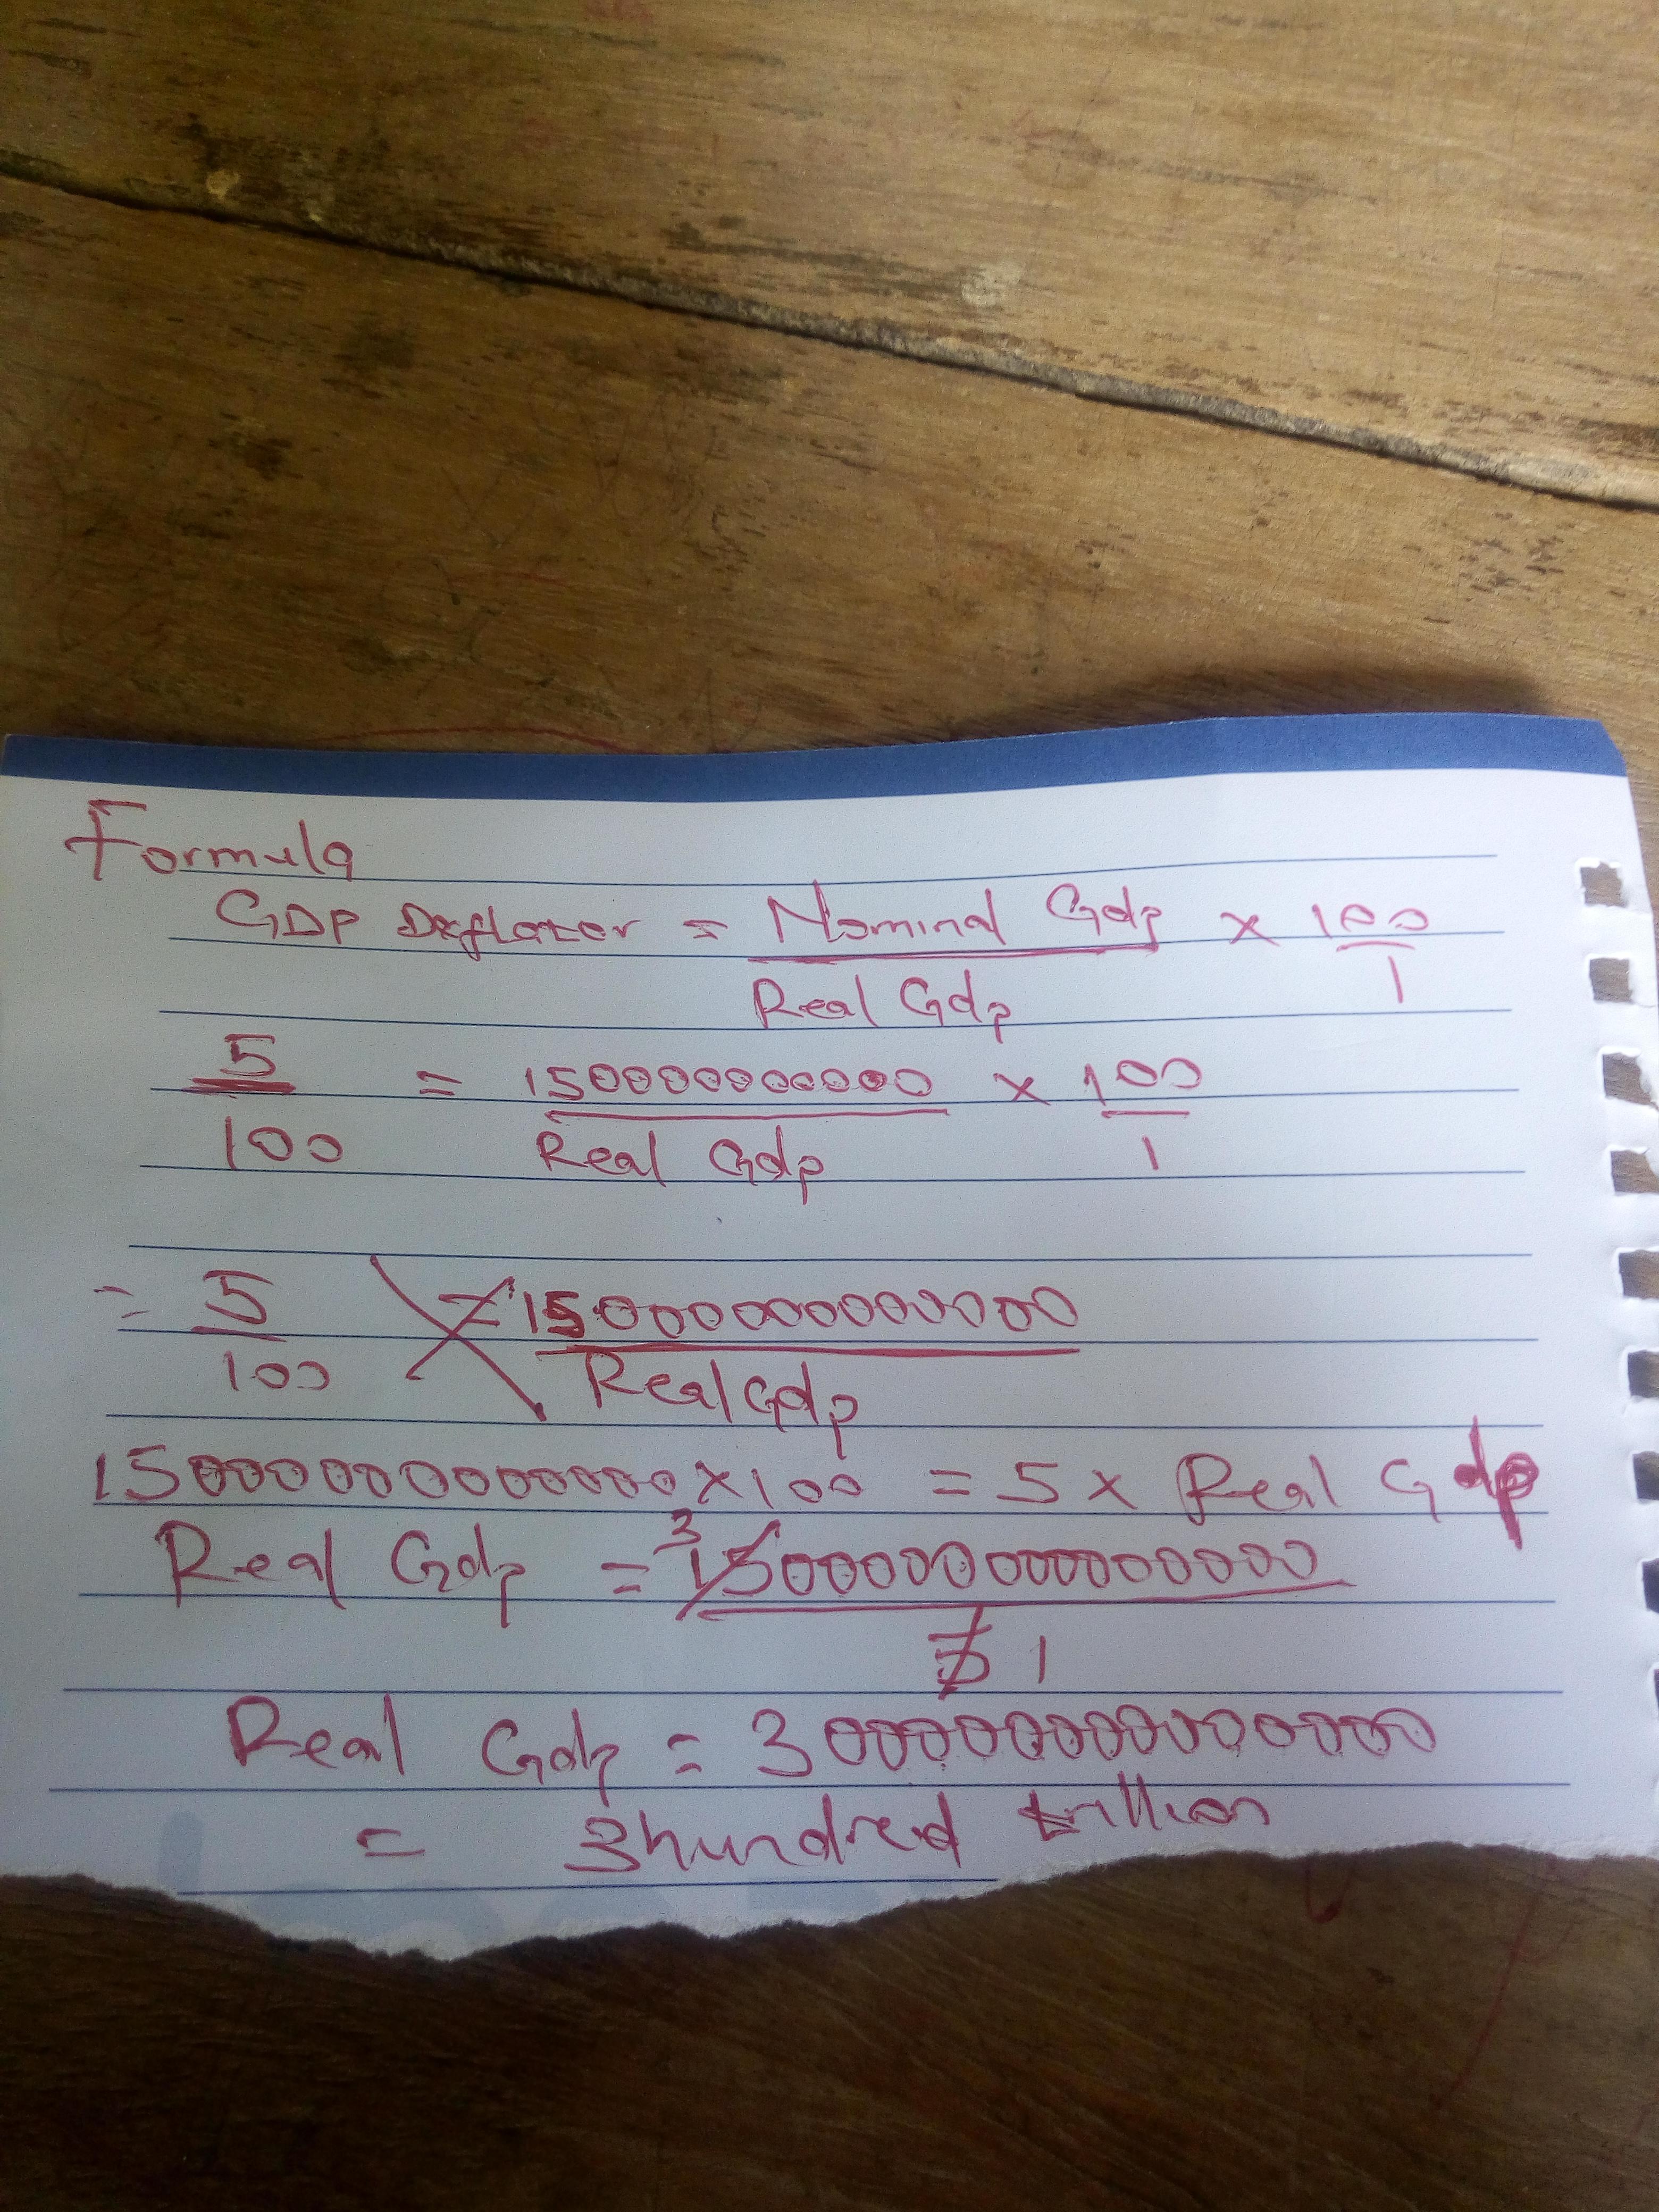 Formula
GDP Deflator = Nominal Gdp x 100
Real Gdp 1
5 = 150000000000 x 100
100 Real Gdp 1
= 5 = 15000000000000
100 Real Gdp
15000000000000 x 100 = 5 x Real Gdp
3
Real Gdp = 1500000000000000
5 1
Real Gdp = 300000000000000
= 3 hundred trillion